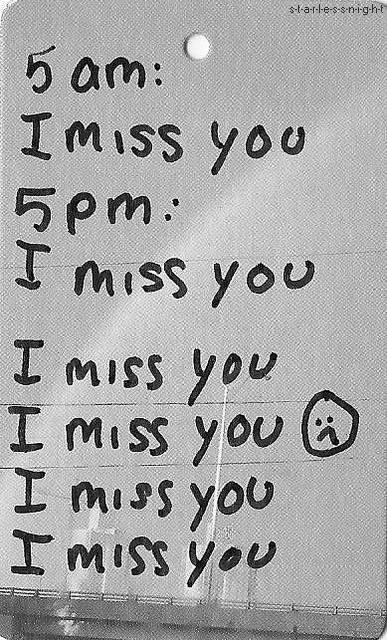 s-t-a-r-l-e-s-s-n-i-g-h-t
5 am:
I miss you
5pm:
I miss you
I miss you
I miss you
I miss you
I miss you